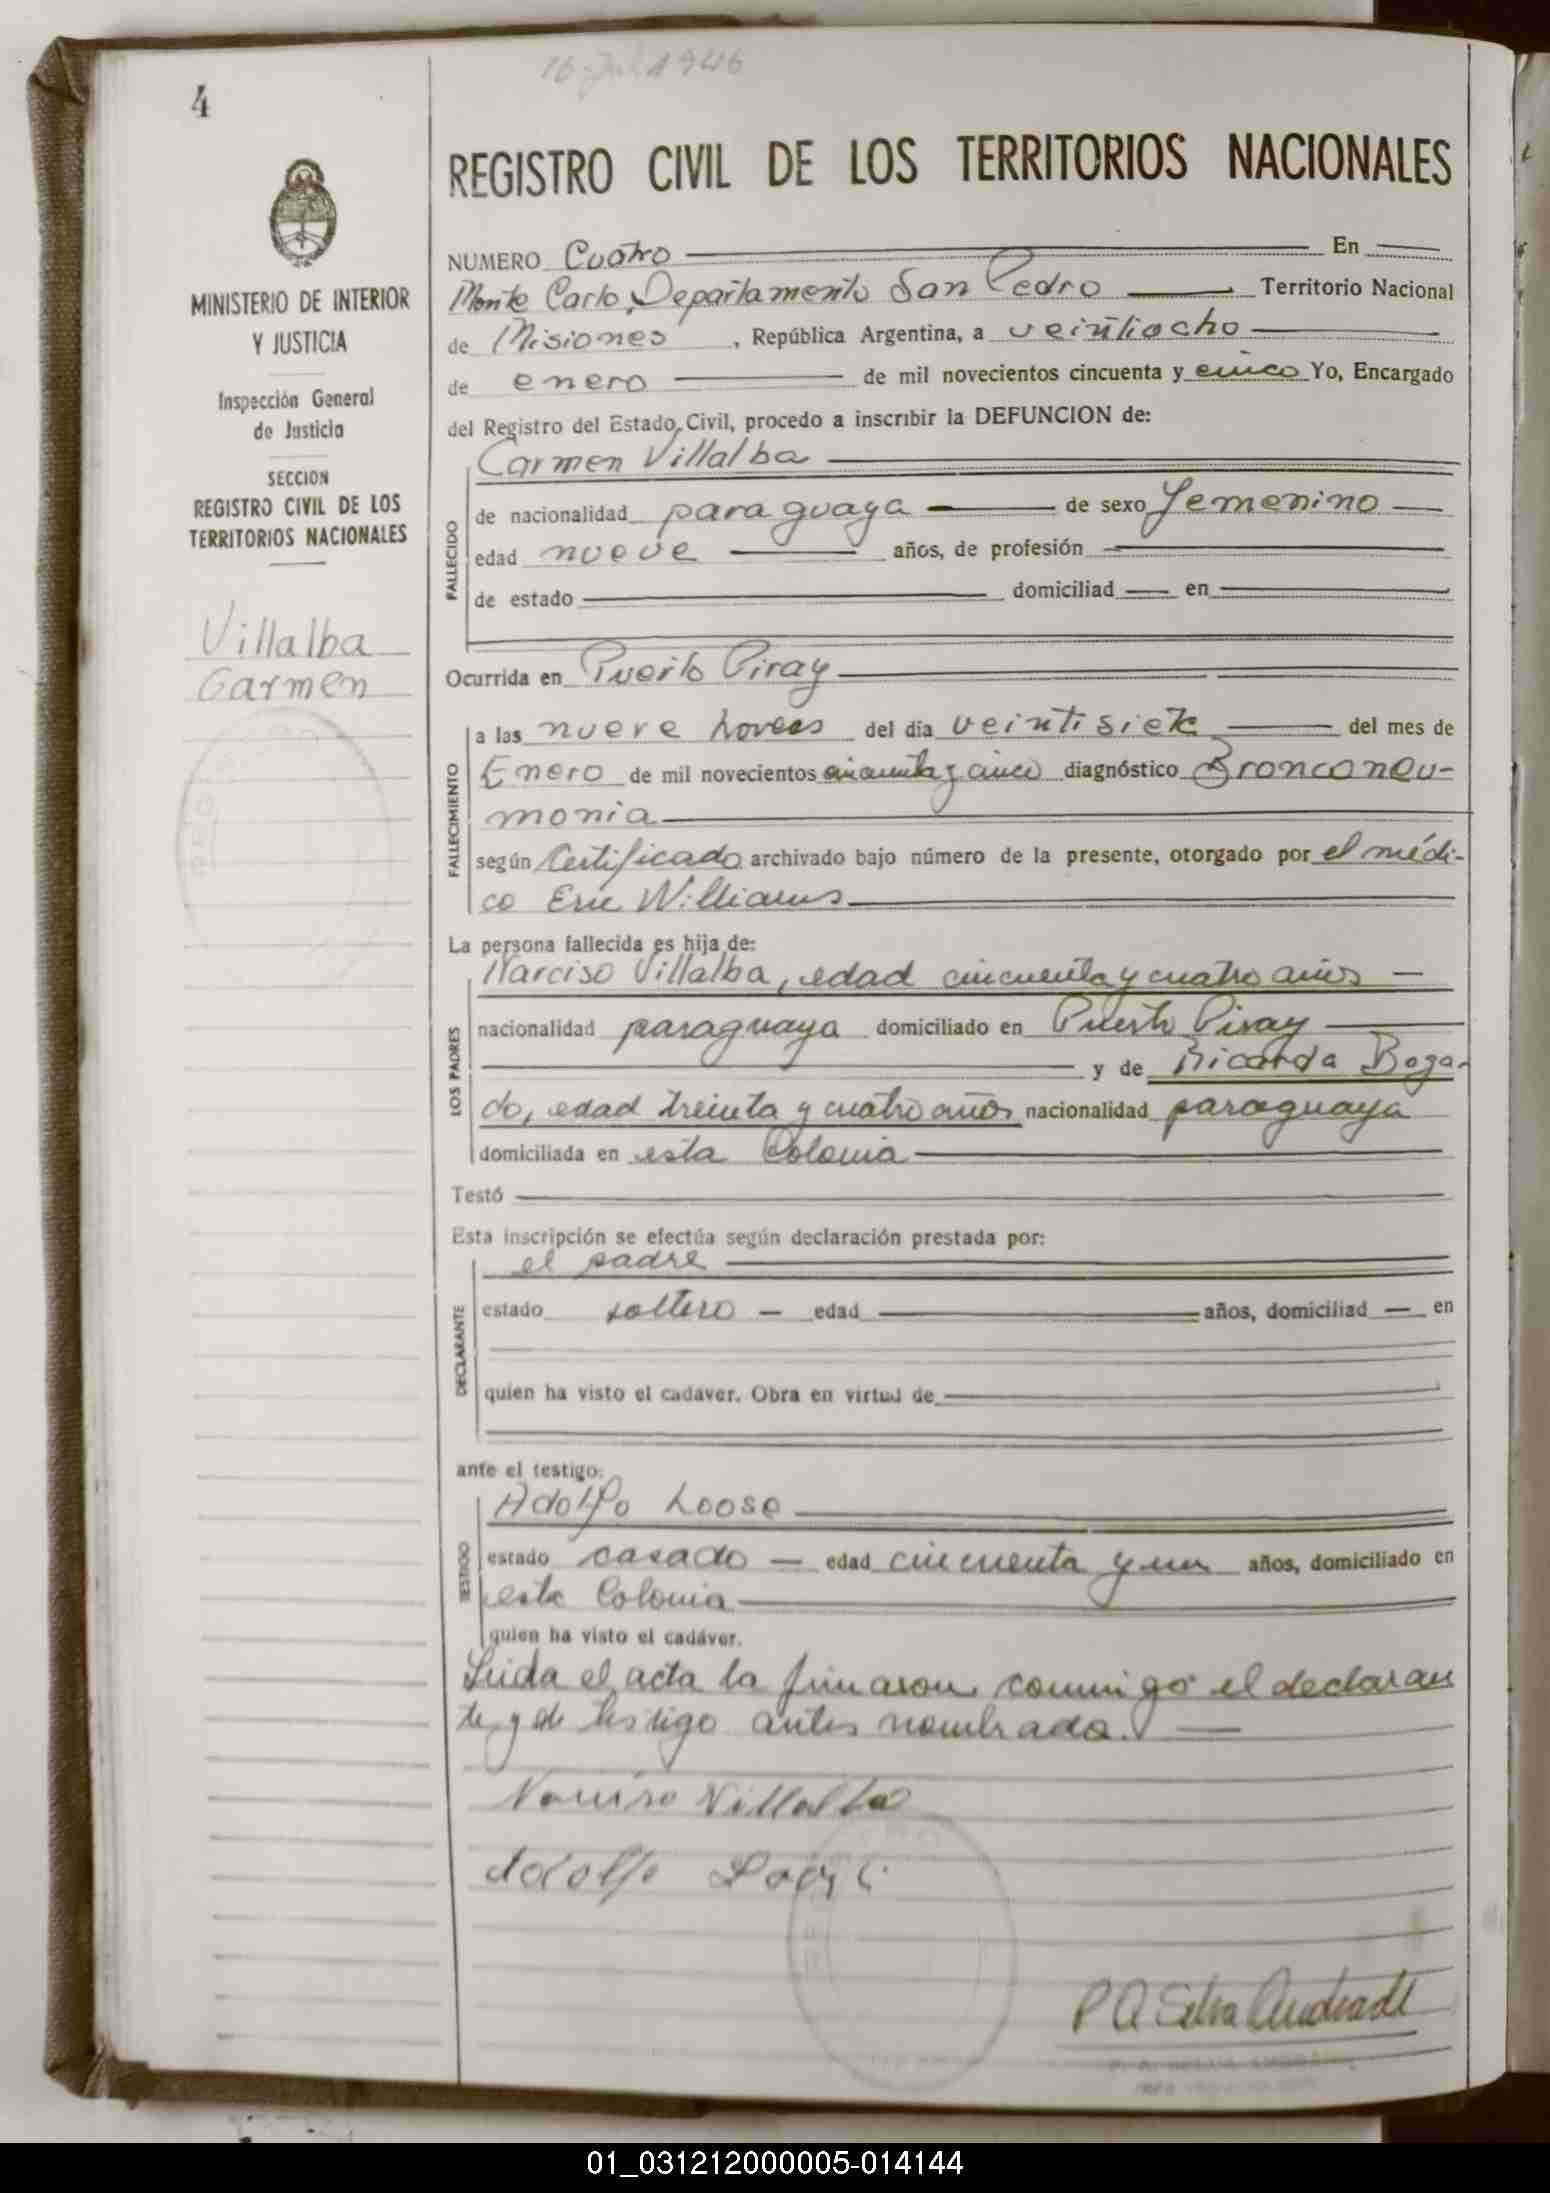 16 Jul 1946
4
REGISTRO CIVIL DE LOS TERRITORIOS NACIONALES
MINISTERIO DE INTERIOR
Y JUSTICIA
Inspección General
de Justicia
SECCION
REGISTRO CIVIL DE LOS
TERRITORIOS NACIONALES
Villalba
Carmen
NUMERO Cuatro En
Monte Carlo, Departamento San Pedro Territorio Nacional
de Misiones, República Argentina, a veintiocho
de enero de mil novecientos cincuenta y cinco Yo, Encargado
del Registro del Estado Civil, procedo a inscribir la DEFUNCION de:
Carmen Villalba
FALLECIDO
de nacionalidad paraguaya de sexo femenino
edad nueve años, de profesión
de estado domiciliad en
Ocurrida en Puerto Piray
FALLECIMIENTO
a las nueve horas del día veintisiete del mes de
Enero de mil novecientos cincuenta y cinco diagnóstico Bronconeu-
monia
según Certificado archivado bajo número de la presente, otorgado por el médi-
co Eric Williams
La persona fallecida es hija de:
LOS PADRES
Narciso Villalba, edad cincuenta y cuatro años
nacionalidad paraguaya domiciliado en Puerto Piray
y de Ricarda Boga-
do, edad treinta y cuatro años nacionalidad paraguaya
domiciliada en esta Colonia
Testó
Esta inscripción se efectúa según declaración prestada por:
DECLARANTE
el padre
estado soltero edad años, domiciliad en
quien ha visto el cadáver. Obra en virtud de
ante el testigo:
TESTIGO
Adolfo Loose
estado casado edad cincuenta y un años, domiciliado en
esta Colonia
quien ha visto el cadáver.
Leida el acta la firmaron conmigo el declaran
te y el testigo antes nombrado.
Narciso Villalba
Adolfo
P A Silva Andrade
01_031212000005-014144